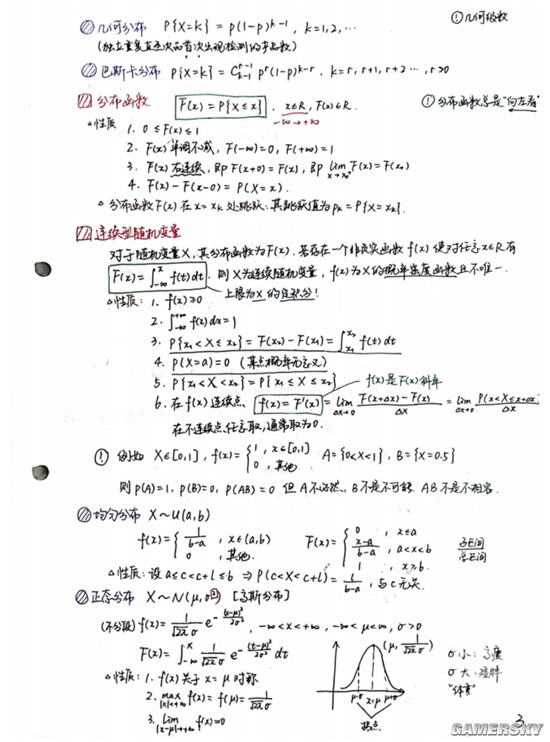 几何分布 P{X=k} = p(1-p)^{k-1}, k=1,2,… ①几何级数
(独立重复直至次品首次出现检测的产品数)
巴斯卡分布 P{X=k} = C_{k-1}^{r-1} p^r(1-p)^{k-r}, k=r, r+1, r+2…, r>0
分布函数 F(x) = P{X≤x}, x∈R, F(x)∈R. ! 分布函数总是"向左看"
-∞→+∞
△性质 1. 0≤F(x)≤1
2. F(x)单调不减, F(-∞)=0, F(+∞)=1
3. F(x)右连续, 即F(x+0)=F(x), 即 lim_{x→x₀⁺} F(x)=F(x₀)
4. F(x)-F(x-0) = P(X=x).
△分布函数F(x)在x=x_k处跳跃, 其跳跃值为p_k=P{X=x_k}.
连续型随机变量
对于随机变量X, 其分布函数为F(x). 若存在一个非负实函数f(x)使对任意x∈R有
F(x)=∫_{-∞}^{x} f(t)dt. 则X为连续随机变量, f(x)为X的概率密度函数且不唯一.
上限为x的定积分!
△性质: 1. f(x)≥0
2. ∫_{-∞}^{+∞} f(x)dx=1
3. P{x₁<X≤x₂} = F(x₂)-F(x₁) = ∫_{x₁}^{x₂} f(t)dt
4. P(X=a)=0 (某点概率无意义)
5. P{x₁<X<x₂} = P{x₁≤X≤x₂} f(x)是F(x)斜率
6. 在f(x)连续点, f(x)=F'(x) = lim_{Δx→0} F(x+Δx)-F(x)/Δx = lim_{Δx→0} P(x<X≤x+Δx)/Δx
在不连续点任意取, 通常取为0.
! 例如 X∈[0,1], f(x)={1, x∈[0,1] A={0<X<1}, B={X=0.5}
0, 其他
则P(A)=1, P(B)=0, P(AB)=0 但A不必然, B不是不可能, AB不是不相容.
均匀分布 X~U(a,b)
f(x)={1/(b-a), x∈(a,b) F(x)={0, x≤a
0, 其他. (x-a)/(b-a), a<x<b
1, x≥b.
△性质: 设a≤c<c+l≤b ⇒ P(c<X<c+l)=l/(b-a), 与c无关.
正态分布 X~N(μ,σ²) [高斯分布]
(不分段) f(x)=1/(√2π σ) e^{-(x-μ)²/2σ²}, -∞<x<+∞, -∞<μ<∞, σ>0
F(x)=∫_{-∞}^{x} 1/(√2π σ) e^{-(t-μ)²/2σ²} dt
(μ, 1/(√2π σ))
σ小: 高瘦
σ大: 矮胖
"体重"
△性质: 1. f(x)关于x=μ对称
2. max_{|x|<+∞} f(x)=f(μ)=1/(√2π σ)
3. lim_{|x-μ|→+∞} f(x)=0
μ-σ x=μ μ+σ
拐点
3
GAMERSKY